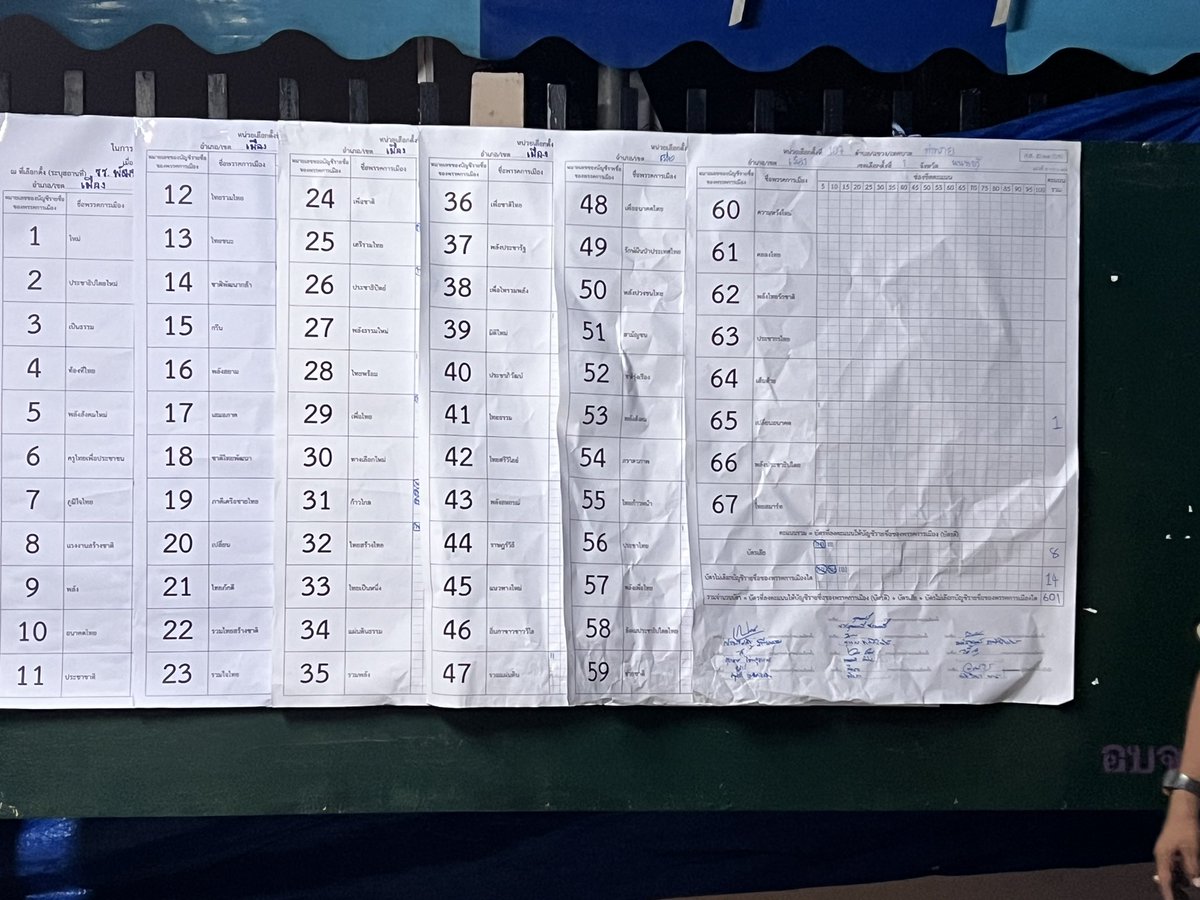 ในการ
เมื่อ
ณ ที่เลือกตั้ง (ระบุสถานที่) รร.
อำเภอ/เขต เมือง
หมายเลขของบัญชีรายชื่อของพรรคการเมือง ชื่อพรรคการเมือง
1 ใหม่
2 ประชาธิปไตยใหม่
3 เป็นธรรม
4 ท้องที่ไทย
5 พลังสังคมใหม่
6 ครูไทยเพื่อประชาชน
7 ภูมิใจไทย
8 แรงงานสร้างชาติ
9 พลัง
10 อนาคตไทย
11 ประชาชาติ
หน่วยเลือกตั้ง
อำเภอ/เขต เมือง
หมายเลขของบัญชีรายชื่อของพรรคการเมือง ชื่อพรรคการเมือง
12 ไทยรวมไทย
13 ไทยชนะ
14 ชาติพัฒนากล้า
15 กรีน
16 พลังสยาม
17 เสมอภาค
18 ชาติไทยพัฒนา
19 ภาคีเครือข่ายไทย
20 เปลี่ยน
21 ไทยภักดี
22 รวมไทยสร้างชาติ
23 รวมใจไทย
หน่วยเลือกตั้ง
อำเภอ/เขต เมือง
หมายเลขของบัญชีรายชื่อของพรรคการเมือง ชื่อพรรคการเมือง
24 เพื่อชาติ
25 เสรีรวมไทย
26 ประชาธิปัตย์
27 พลังธรรมใหม่
28 ไทยพร้อม
29 เพื่อไทย
30 ทางเลือกใหม่
31 ก้าวไกล
32 ไทยสร้างไทย
33 ไทยเป็นหนึ่ง
34 แผ่นดินธรรม
35 รวมพลัง
หน่วยเลือกตั้ง
อำเภอ/เขต เมือง
หมายเลขของบัญชีรายชื่อของพรรคการเมือง ชื่อพรรคการเมือง
36 เพื่อชาติไทย
37 พลังประชารัฐ
38 เพื่อไทรวมพลัง
39 มิติใหม่
40 ประชาภิวัฒน์
41 ไทยธรรม
42 ไทยศรีวิไลย์
43 พลังสหกรณ์
44 ราษฎร์วิถี
45 แนวทางใหม่
46 ถิ่นกาขาวชาววิไล
47 รวมแผ่นดิน
หน่วยเลือกตั้ง
อำเภอ/เขต
หมายเลขของบัญชีรายชื่อของพรรคการเมือง ชื่อพรรคการเมือง
48 เพื่ออนาคตไทย
49 รักษ์ผืนป่าประเทศไทย
50 พลังปวงชนไทย
51 สามัญชน
52 ชาติรุ่งเรือง
53 พลังสังคม
54 ภราดรภาพ
55 ไทยก้าวหน้า
56 ประชาไทย
57 พลังเพื่อไทย
58
59 ช่วยชาติ
หน่วยเลือกตั้งที่ 107 ตำบล/แขวง/เทศบาล ท่าทราย
อำเภอ/เขต เมือง เขตเลือกตั้งที่ 1 จังหวัด นนทบุรี
หมายเลขของบัญชีรายชื่อของพรรคการเมือง ชื่อพรรคการเมือง ช่องขีดคะแนน คะแนนรวม
5 10 15 20 25 30 35 40 45 50 55 60 65 70 75 80 85 90 95 100
60 ความหวังใหม่
61 คลองไทย
62 พลังไทยรักชาติ
63 ประชากรไทย
64 เส้นด้าย
65 เปลี่ยนอนาคต 1
66 พลังประชาธิปไตย
67 ไทยสมาร์ท
คะแนนรวม = บัตรที่ลงคะแนนให้บัญชีรายชื่อของพรรคการเมือง (บัตรดี)
บัตรเสีย 8
บัตรไม่เลือกบัญชีรายชื่อของพรรคการเมืองใด 14
รวมจำนวนบัตร = บัตรที่ลงคะแนนให้บัญชีรายชื่อของพรรคการเมือง (บัตรดี) + บัตรเสีย + บัตรไม่เลือกบัญชีรายชื่อของพรรคการเมืองใด 601
อบจ